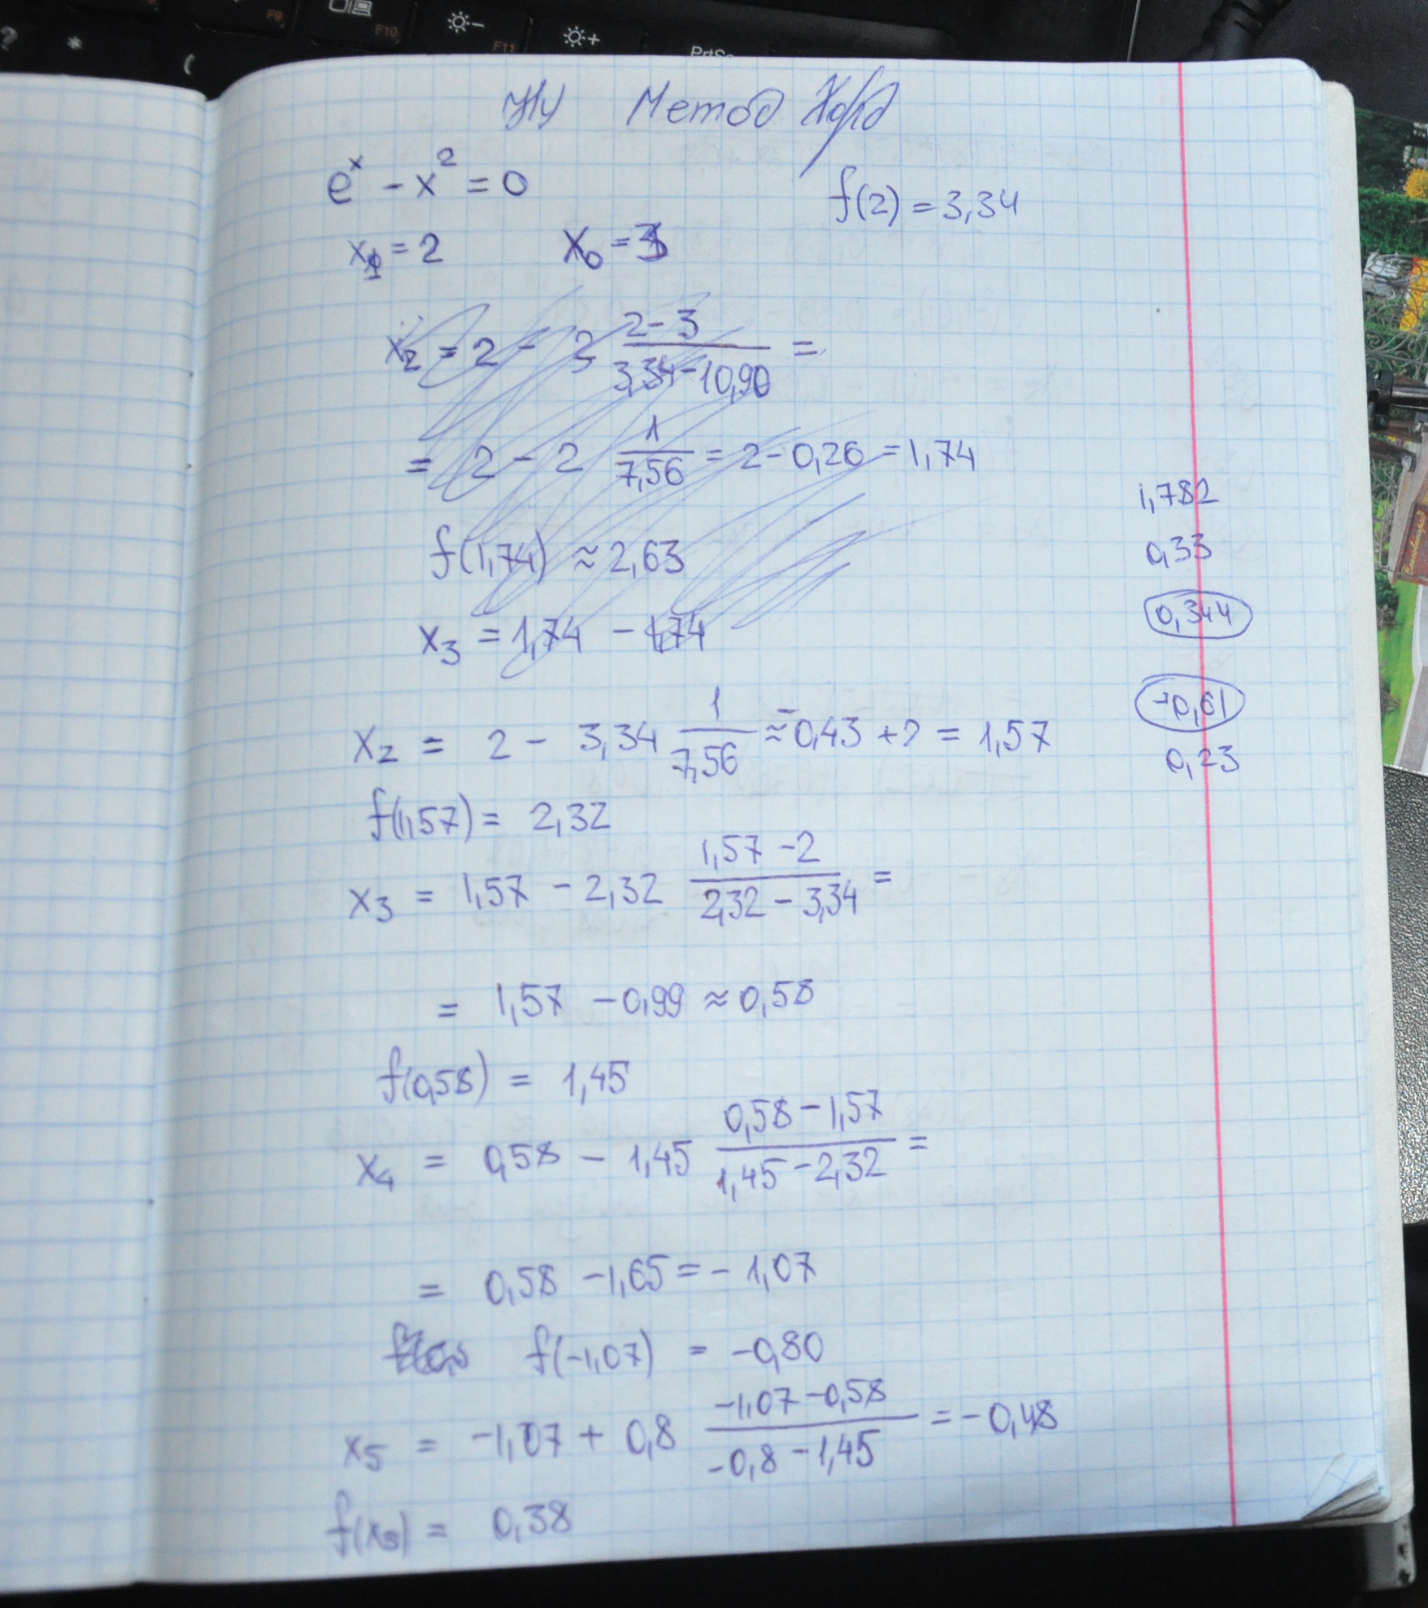 F10
F11
PrtSc
НУ Метод Хорд
e^x - x^2 = 0
f(2) = 3,34
x_1 = 2 x_0 = 3
x_2 = 2 - 2 (2-3)/(3,34-10,90) =
= 2 - 2 1/7,56 = 2 - 0,26 = 1,74
f(1,74) ≈ 2,63
x_3 = 1,74 - 1,74
x_2 = 2 - 3,34 1/7,56 ≈ -0,43 + 2 = 1,57
f(1,57) = 2,32
x_3 = 1,57 - 2,32 (1,57-2)/(2,32-3,34) =
= 1,57 - 0,99 ≈ 0,58
f(0,58) = 1,45
x_4 = 0,58 - 1,45 (0,58-1,57)/(1,45-2,32) =
= 0,58 - 1,65 = -1,07
f(-1,07) = -0,80
x_5 = -1,07 + 0,8 (-1,07-0,58)/(-0,8-1,45) = -0,48
f(x_5) = 0,38
1,782
0,33
0,344
-0,61
0,23